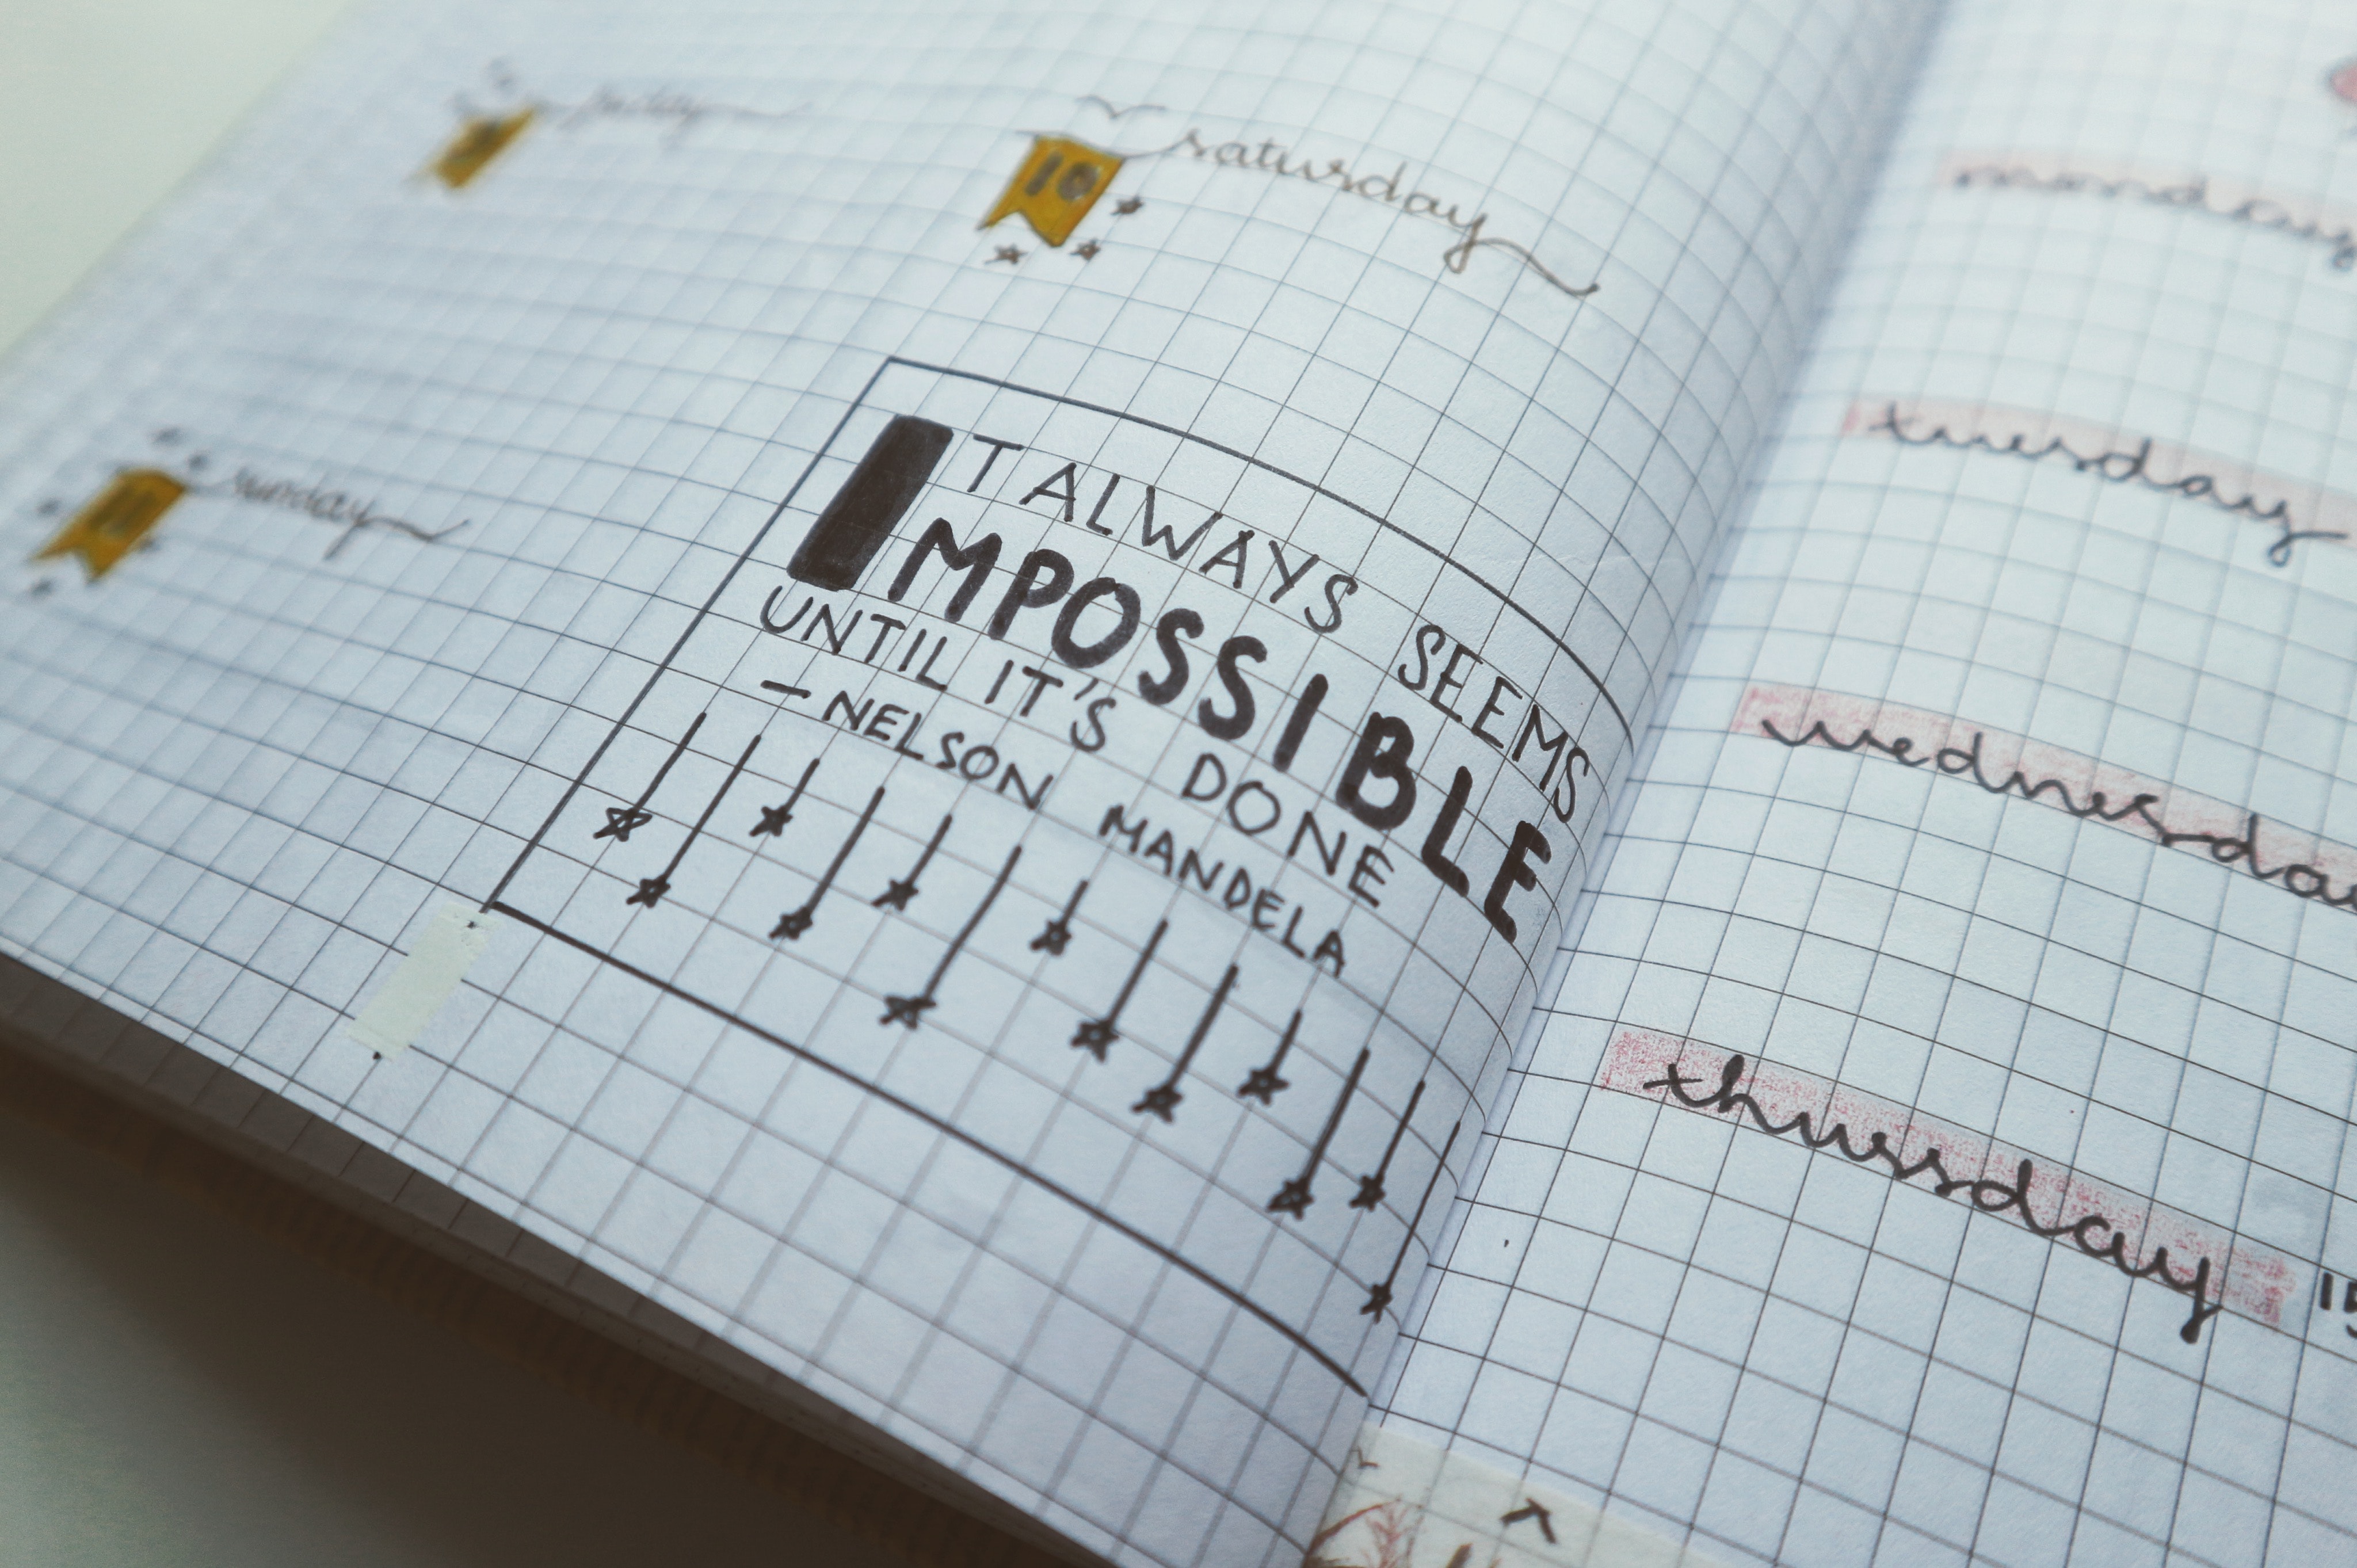 friday
10 saturday
11 sunday
IT ALWAYS SEEMS
IMPOSSIBLE
UNTIL IT'S DONE
- NELSON MANDELA
monday
tuesday
wednesday
thursday